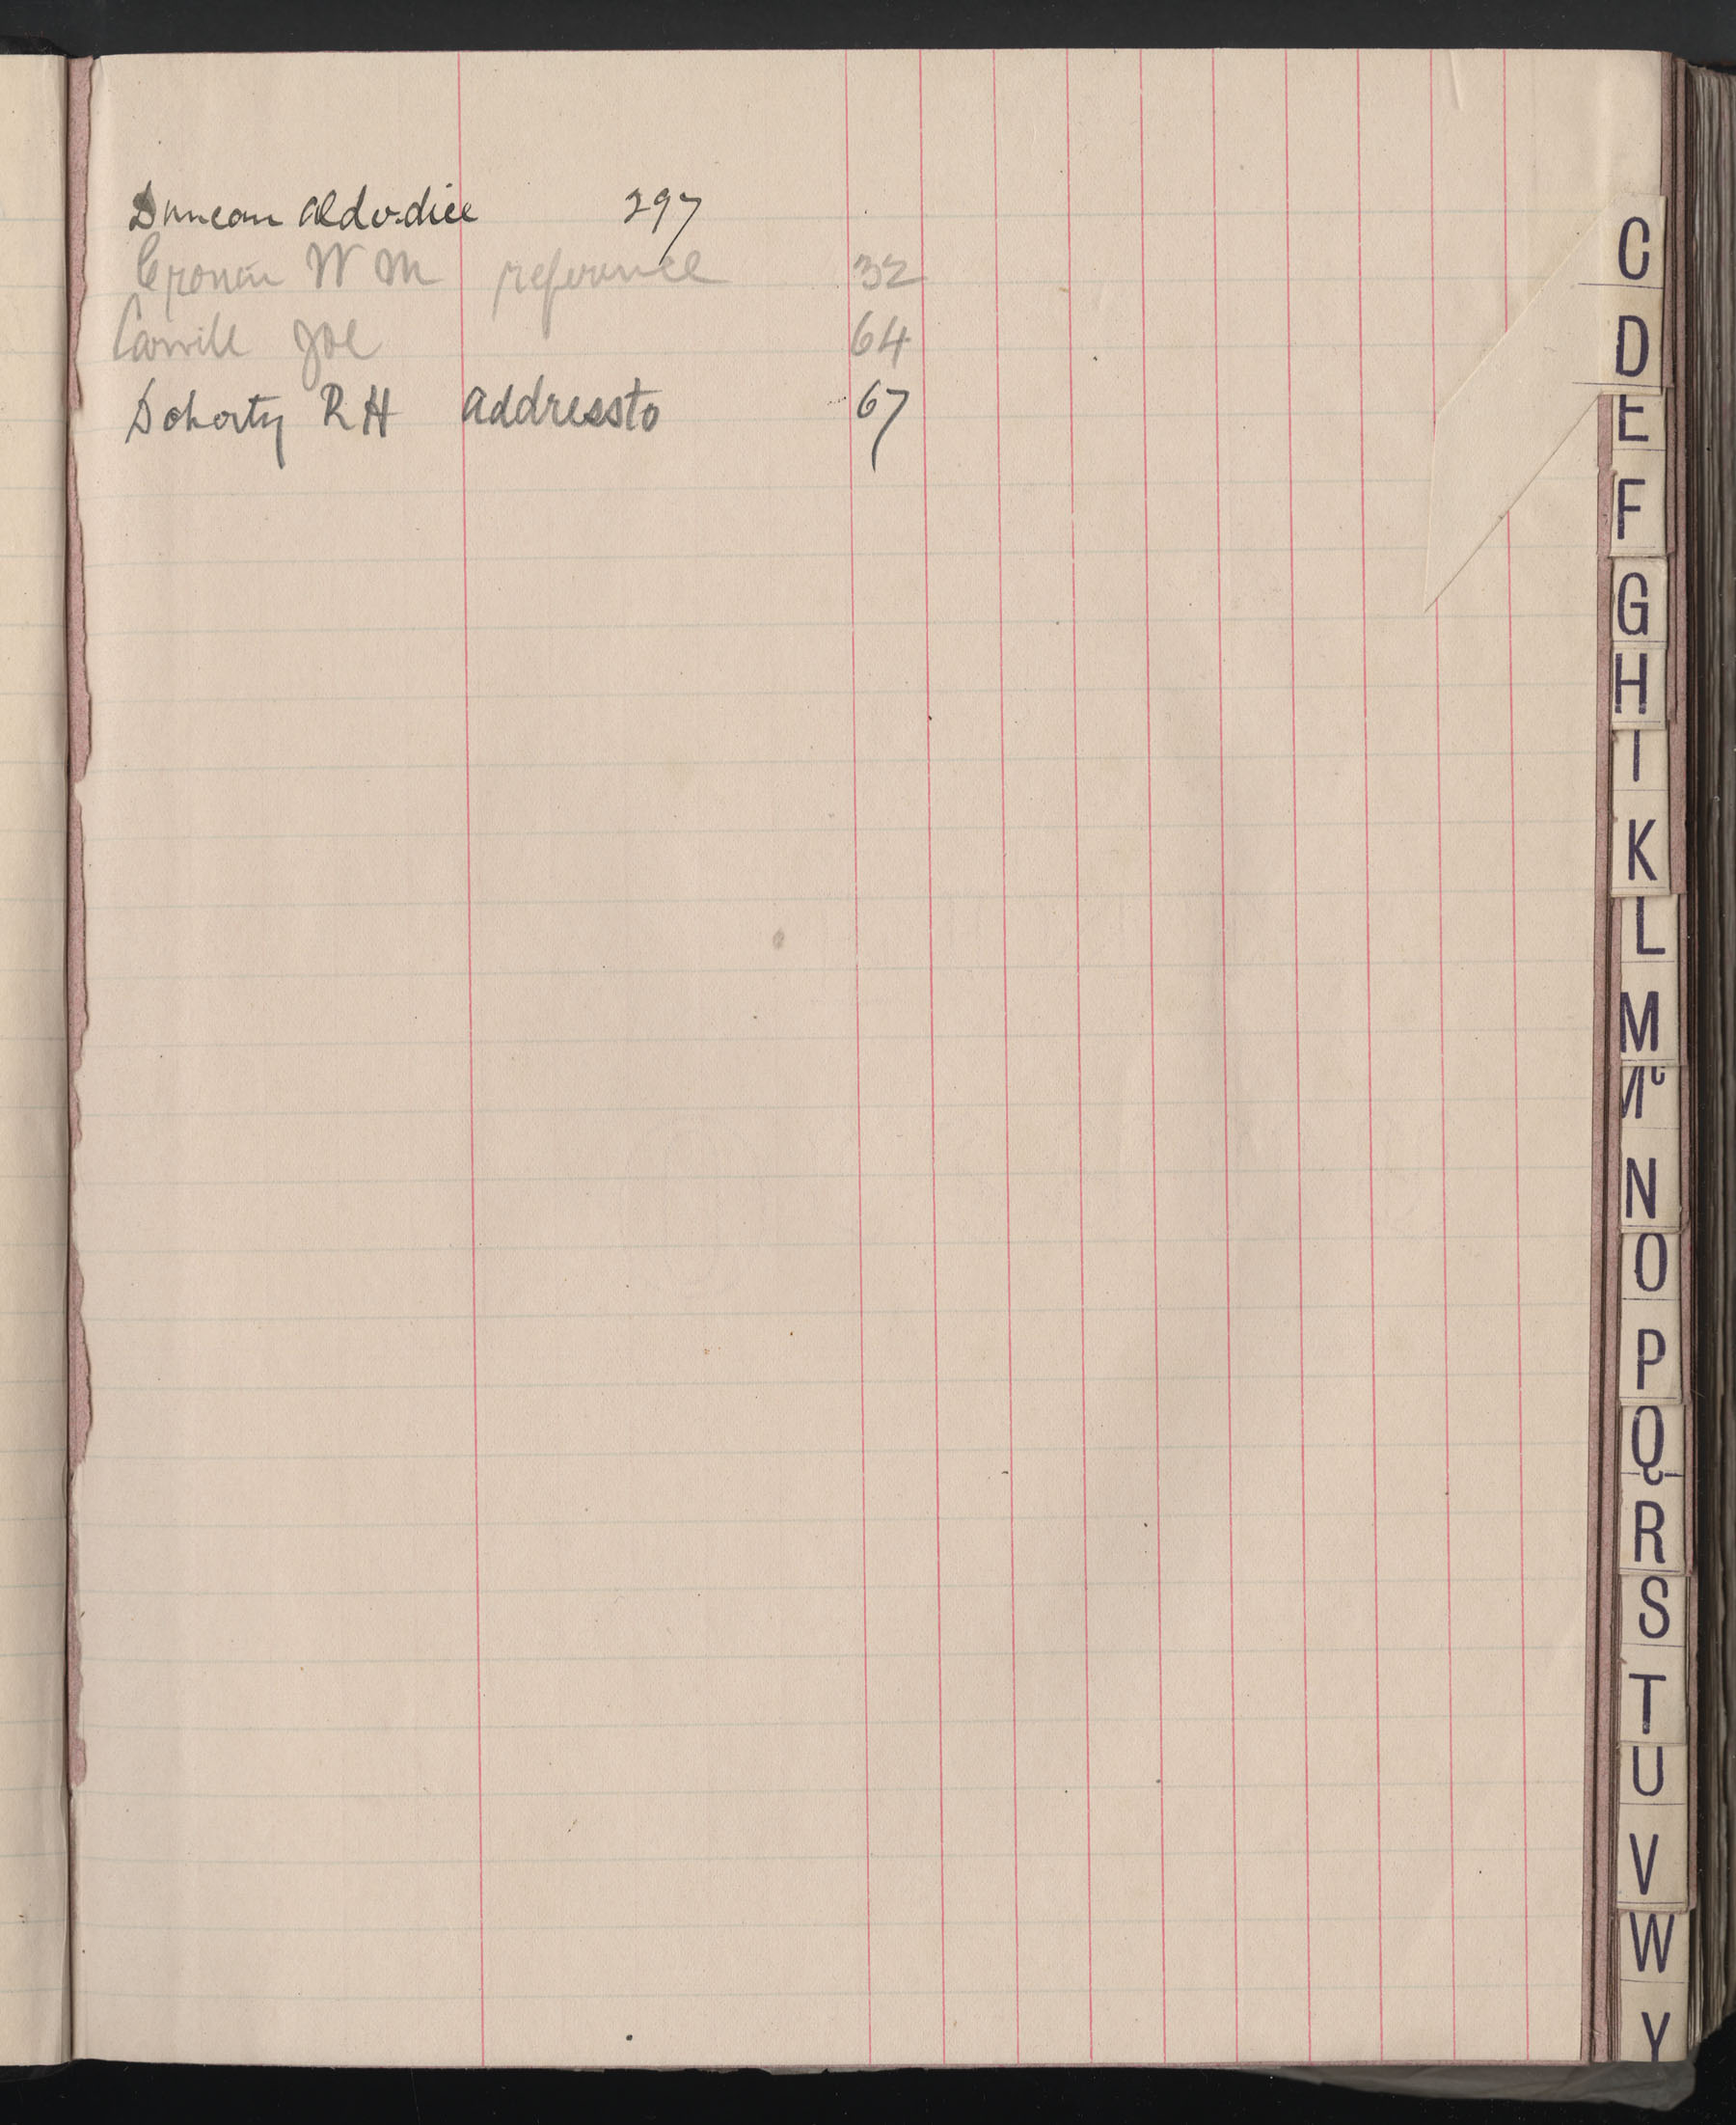 Duncan Alderdice 297
Cronin W M reference 32
Carvill Joe 64
Doherty R H address to 67
C
D
E
F
G
H
I
K
L
M
Mc
N
O
P
Q
R
S
T
U
V
W
Y